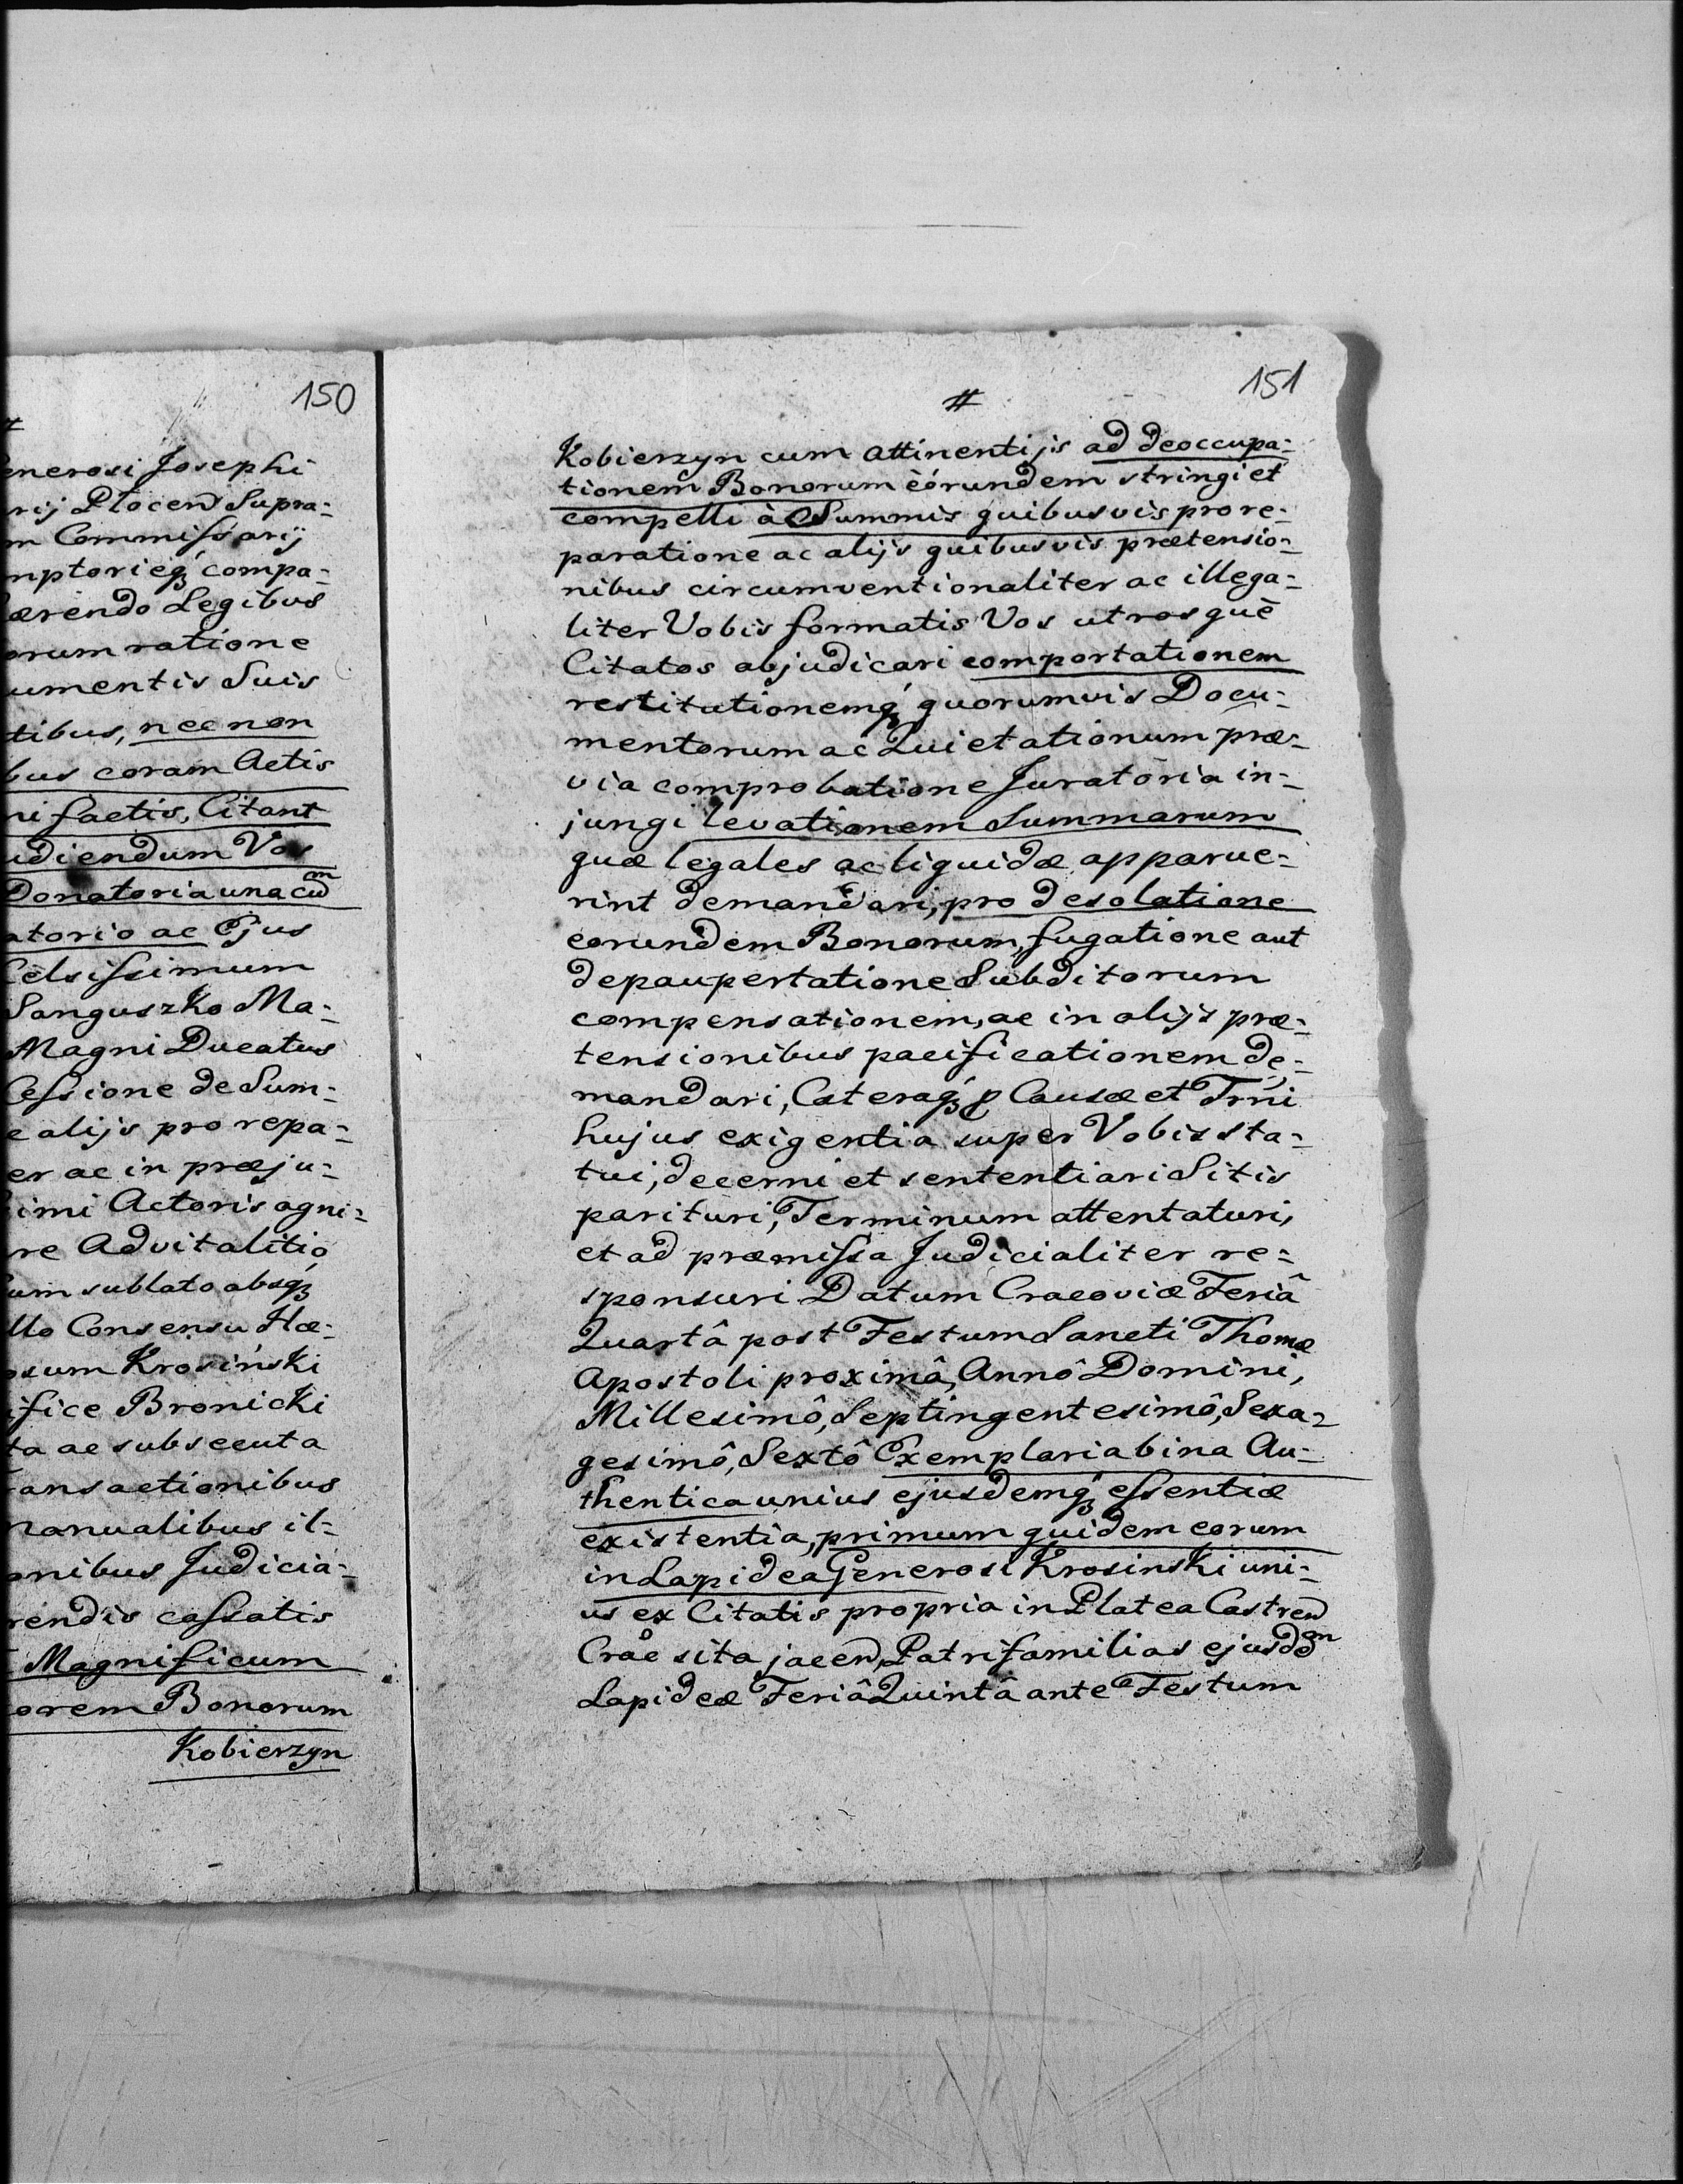 150
#
enerosi Josephi
rij Plocen Supra=
m Commissarij
mptorieq́ȝ compa=
ærendo Legibus
orum ratione
umentis Suis
tibus, nec non
bus coram Actis
ni factis, Citant
udiendum Vos
Donatoria una cũm
atorio ac Ejus
Celsissimum
Sanguszko Ma=
Magni Ducatus
Cessione de Sum=
e alijs pro repa=
er ac in præju=
imi Actoris agni=
re Advitalitio
um sublato absq́ȝ
llo Consensu Hæ=
osum Krosiński
ifice Bronicki
ta ac subsecuta
ansactionibus
nanualibus il=
onibus Judicia=
rendis cassatis
Magnificum
orem Bonorum
Kobierzyn
151
#
Kobierzyn cum attinentijs ad deoccupa=
tionem Bonorum eórundem stringi et
compelli à Summis quibusvis pro re=
paratione ac alijs quibusvis prætensio=
nibus circumventionaliter ac illega=
liter Vobis formatis Vos utrosquè
Citatos abjudicari comportationem
restitutionemq́ȝ quorumvis Docu=
mentorum ac Quietationum præ=
via comprobatione Juratoria in=
jungi levationem Summarum
quæ legales ac liquidæ apparue=
rint demandari, pro desolatione
eorundem Bonorum, fugatione aut
depaupertatione Subditorum
compensationem, ac in alijs præ=
tensionibus pacificationem de=
mandari, Cæteraq́ȝ ꝑ Causæ et Trni
hujus exigentia super Vobis sta=
tui, decerni et sententiari Sitis
parituri, Terminum attentaturi,
et ad præmissa Judicialiter re=
sponsuri Datum Cracoviæ Feriâ
Quartâ post Festum Sancti Thomæ
Apostoli proximâ, Annô Domini,
Millesimô, Septingentesimô, Sexa=
gesimô, Sextô Exemplaria bina Au=
thentica unius ejusdemq́ȝ essentiæ
existentia, primum quidem eorum
in Lapidea Generosi Krosinski uni=
us ex Citatis propria in Platea Castren
Crac̊ sita jacen, Patrifamilias ejusddem
Lapideæ Feriâ Quintâ ante Festum